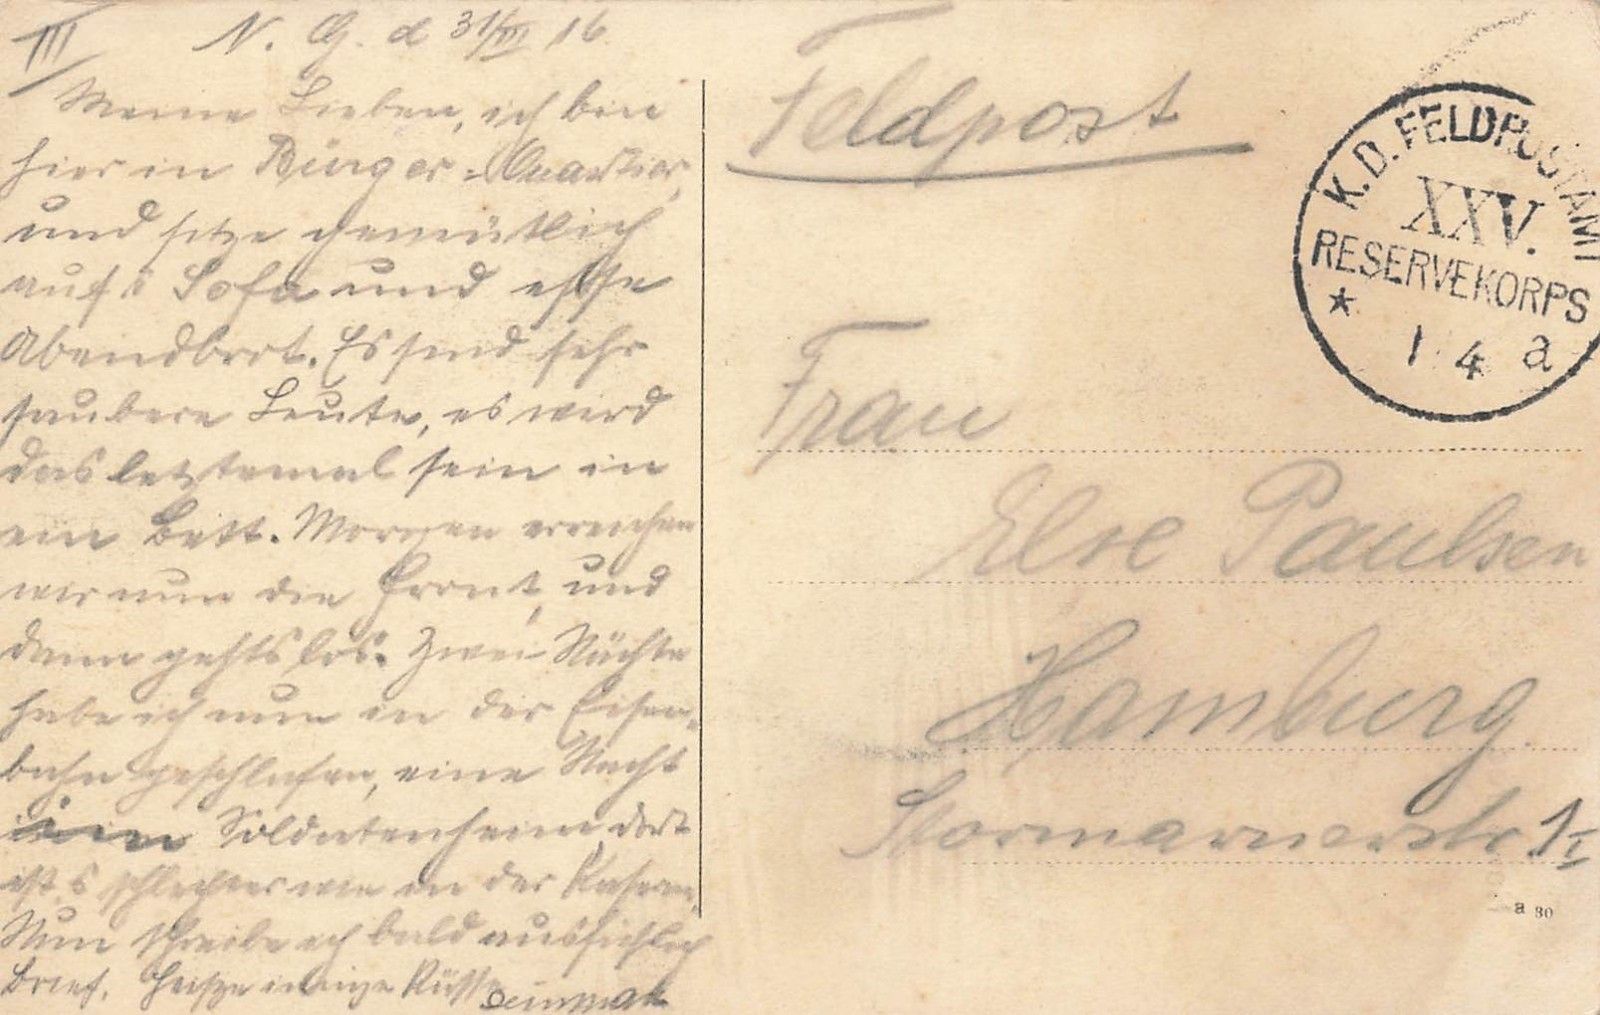 III N. G. d 31/III 16.
Meine Lieben, ich bin
hier in Bürger-Quartier,
und sitze gemütlich
auf'm Sofa und esse
Abendbrot. Es sind sehr
saubere Leute, es wird
das letztemal sein in
ein Bett. Morgen erreichen
wir nun die Front, und
dann gehts los. Zwei Nächte
habe ich nun in der Eisen-
bahn geschlafen, eine Nacht
Soldatenheim, dort
ist's schlechter wie in der Kasern.
Nun schreibe ich bald ausführlich
Brief. Herzl. innige Küsse
Feldpost
K. D. FELDPOSTAMT
XXV.
RESERVEKORPS
* 1 4 a
Frau
Else Paulsen
Hamburg.
Stormarnerstr 1 I
a 30